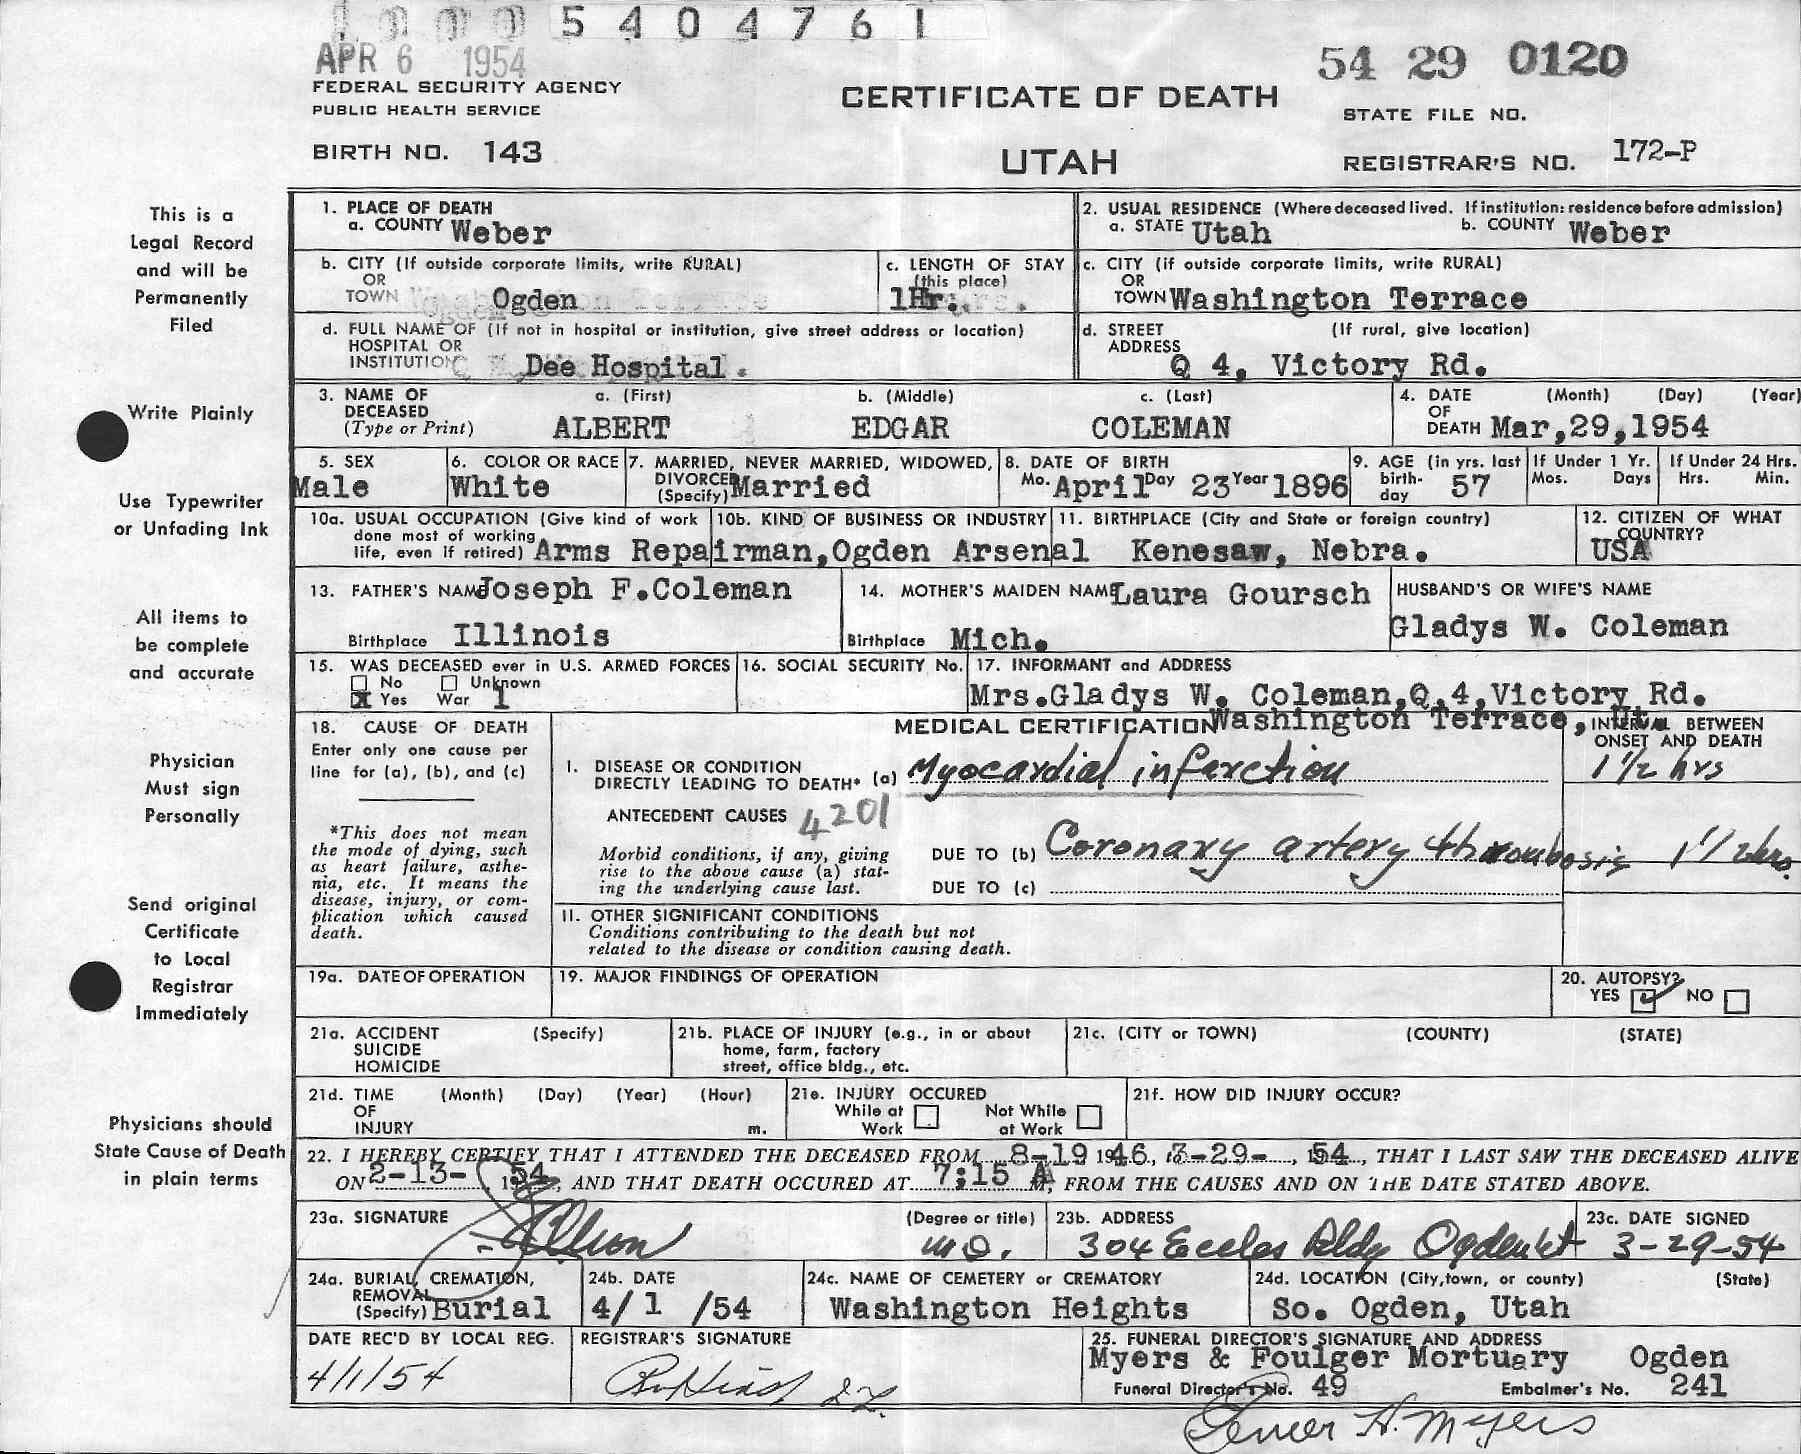 1000 5404761
APR 6 1954
54 29 0120
FEDERAL SECURITY AGENCY
PUBLIC HEALTH SERVICE
CERTIFICATE OF DEATH
STATE FILE NO.
BIRTH NO. 143
UTAH
REGISTRAR'S NO. 172-P
This is a
Legal Record
and will be
Permanently
Filed
Write Plainly
Use Typewriter
or Unfading Ink
All items to
be complete
and accurate
Physician
Must sign
Personally
Send original
Certificate
to Local
Registrar
Immediately
Physicians should
State Cause of Death
in plain terms
1. PLACE OF DEATH
a. COUNTY Weber
2. USUAL RESIDENCE (Where deceased lived. If institution: residence before admission)
a. STATE Utah b. COUNTY Weber
b. CITY (If outside corporate limits, write RURAL)
OR
TOWN Ogden
c. LENGTH OF STAY
(this place)
1Hr.
c. CITY (if outside corporate limits, write RURAL)
OR
TOWN Washington Terrace
d. FULL NAME OF (If not in hospital or institution, give street address or location)
HOSPITAL OR
INSTITUTION Dee Hospital.
d. STREET (If rural, give location)
ADDRESS
Q 4, Victory Rd.
3. NAME OF
DECEASED
(Type or Print)
a. (First) b. (Middle) c. (Last)
ALBERT EDGAR COLEMAN
4. DATE (Month) (Day) (Year)
OF
DEATH Mar,29,1954
5. SEX
Male
6. COLOR OR RACE
White
7. MARRIED, NEVER MARRIED, WIDOWED,
DIVORCED
(Specify) Married
8. DATE OF BIRTH
Mo. April Day 23 Year 1896
9. AGE (in yrs. last
birth-
day 57
If Under 1 Yr.
Mos. Days
If Under 24 Hrs.
Hrs. Min.
10a. USUAL OCCUPATION (Give kind of work
done most of working
life, even if retired)
10b. KIND OF BUSINESS OR INDUSTRY
Arms Repairman, Ogden Arsenal
11. BIRTHPLACE (City and State or foreign country)
Kenesaw, Nebra.
12. CITIZEN OF WHAT
COUNTRY?
USA
13. FATHER'S NAME Joseph F.Coleman
Birthplace Illinois
14. MOTHER'S MAIDEN NAME Laura Goursch
Birthplace Mich.
HUSBAND'S OR WIFE'S NAME
Gladys W. Coleman
15. WAS DECEASED ever in U.S. ARMED FORCES
No Unknown
X Yes War 1
16. SOCIAL SECURITY No.
17. INFORMANT and ADDRESS
Mrs.Gladys W. Coleman,Q.4,Victory Rd.
Washington Terrace, Ut.
18. CAUSE OF DEATH
Enter only one cause per
line for (a), (b), and (c)
*This does not mean
the mode of dying, such
as heart failure, asthe-
nia, etc. It means the
disease, injury, or com-
plication which caused
death.
MEDICAL CERTIFICATION
INTERVAL BETWEEN
ONSET AND DEATH
I. DISEASE OR CONDITION
DIRECTLY LEADING TO DEATH* (a) Myocardial infarction 1 1/2 hrs
ANTECEDENT CAUSES 4201
Morbid conditions, if any, giving
rise to the above cause (a) stat-
ing the underlying cause last.
DUE TO (b) Coronary artery thrombosis 1 1/2 hrs.
DUE TO (c)
II. OTHER SIGNIFICANT CONDITIONS
Conditions contributing to the death but not
related to the disease or condition causing death.
19a. DATE OF OPERATION
19. MAJOR FINDINGS OF OPERATION
20. AUTOPSY?
YES ✓ NO
21a. ACCIDENT (Specify)
SUICIDE
HOMICIDE
21b. PLACE OF INJURY (e.g., in or about
home, farm, factory
street, office bldg., etc.
21c. (CITY or TOWN) (COUNTY) (STATE)
21d. TIME (Month) (Day) (Year) (Hour)
OF
INJURY m.
21e. INJURY OCCURED
While at Work Not While at Work
21f. HOW DID INJURY OCCUR?
22. I HEREBY CERTIFY THAT I ATTENDED THE DECEASED FROM 8-19 1946, 3-29-, 54, THAT I LAST SAW THE DECEASED ALIVE
ON 2-13- 1954, AND THAT DEATH OCCURED AT 7:15 A M, FROM THE CAUSES AND ON THE DATE STATED ABOVE.
23a. SIGNATURE (Degree or title)
M.D.
23b. ADDRESS
304 Eccles Bldg Ogden Ut
23c. DATE SIGNED
3-29-54
24a. BURIAL, CREMATION,
REMOVAL
(Specify) Burial
24b. DATE
4/1/54
24c. NAME OF CEMETERY or CREMATORY
Washington Heights
24d. LOCATION (City, town, or county) (State)
So. Ogden, Utah
DATE REC'D BY LOCAL REG.
4/1/54
REGISTRAR'S SIGNATURE
25. FUNERAL DIRECTOR'S SIGNATURE AND ADDRESS
Myers & Foulger Mortuary Ogden
Funeral Director's No. 49 Embalmer's No. 241
H. Myers